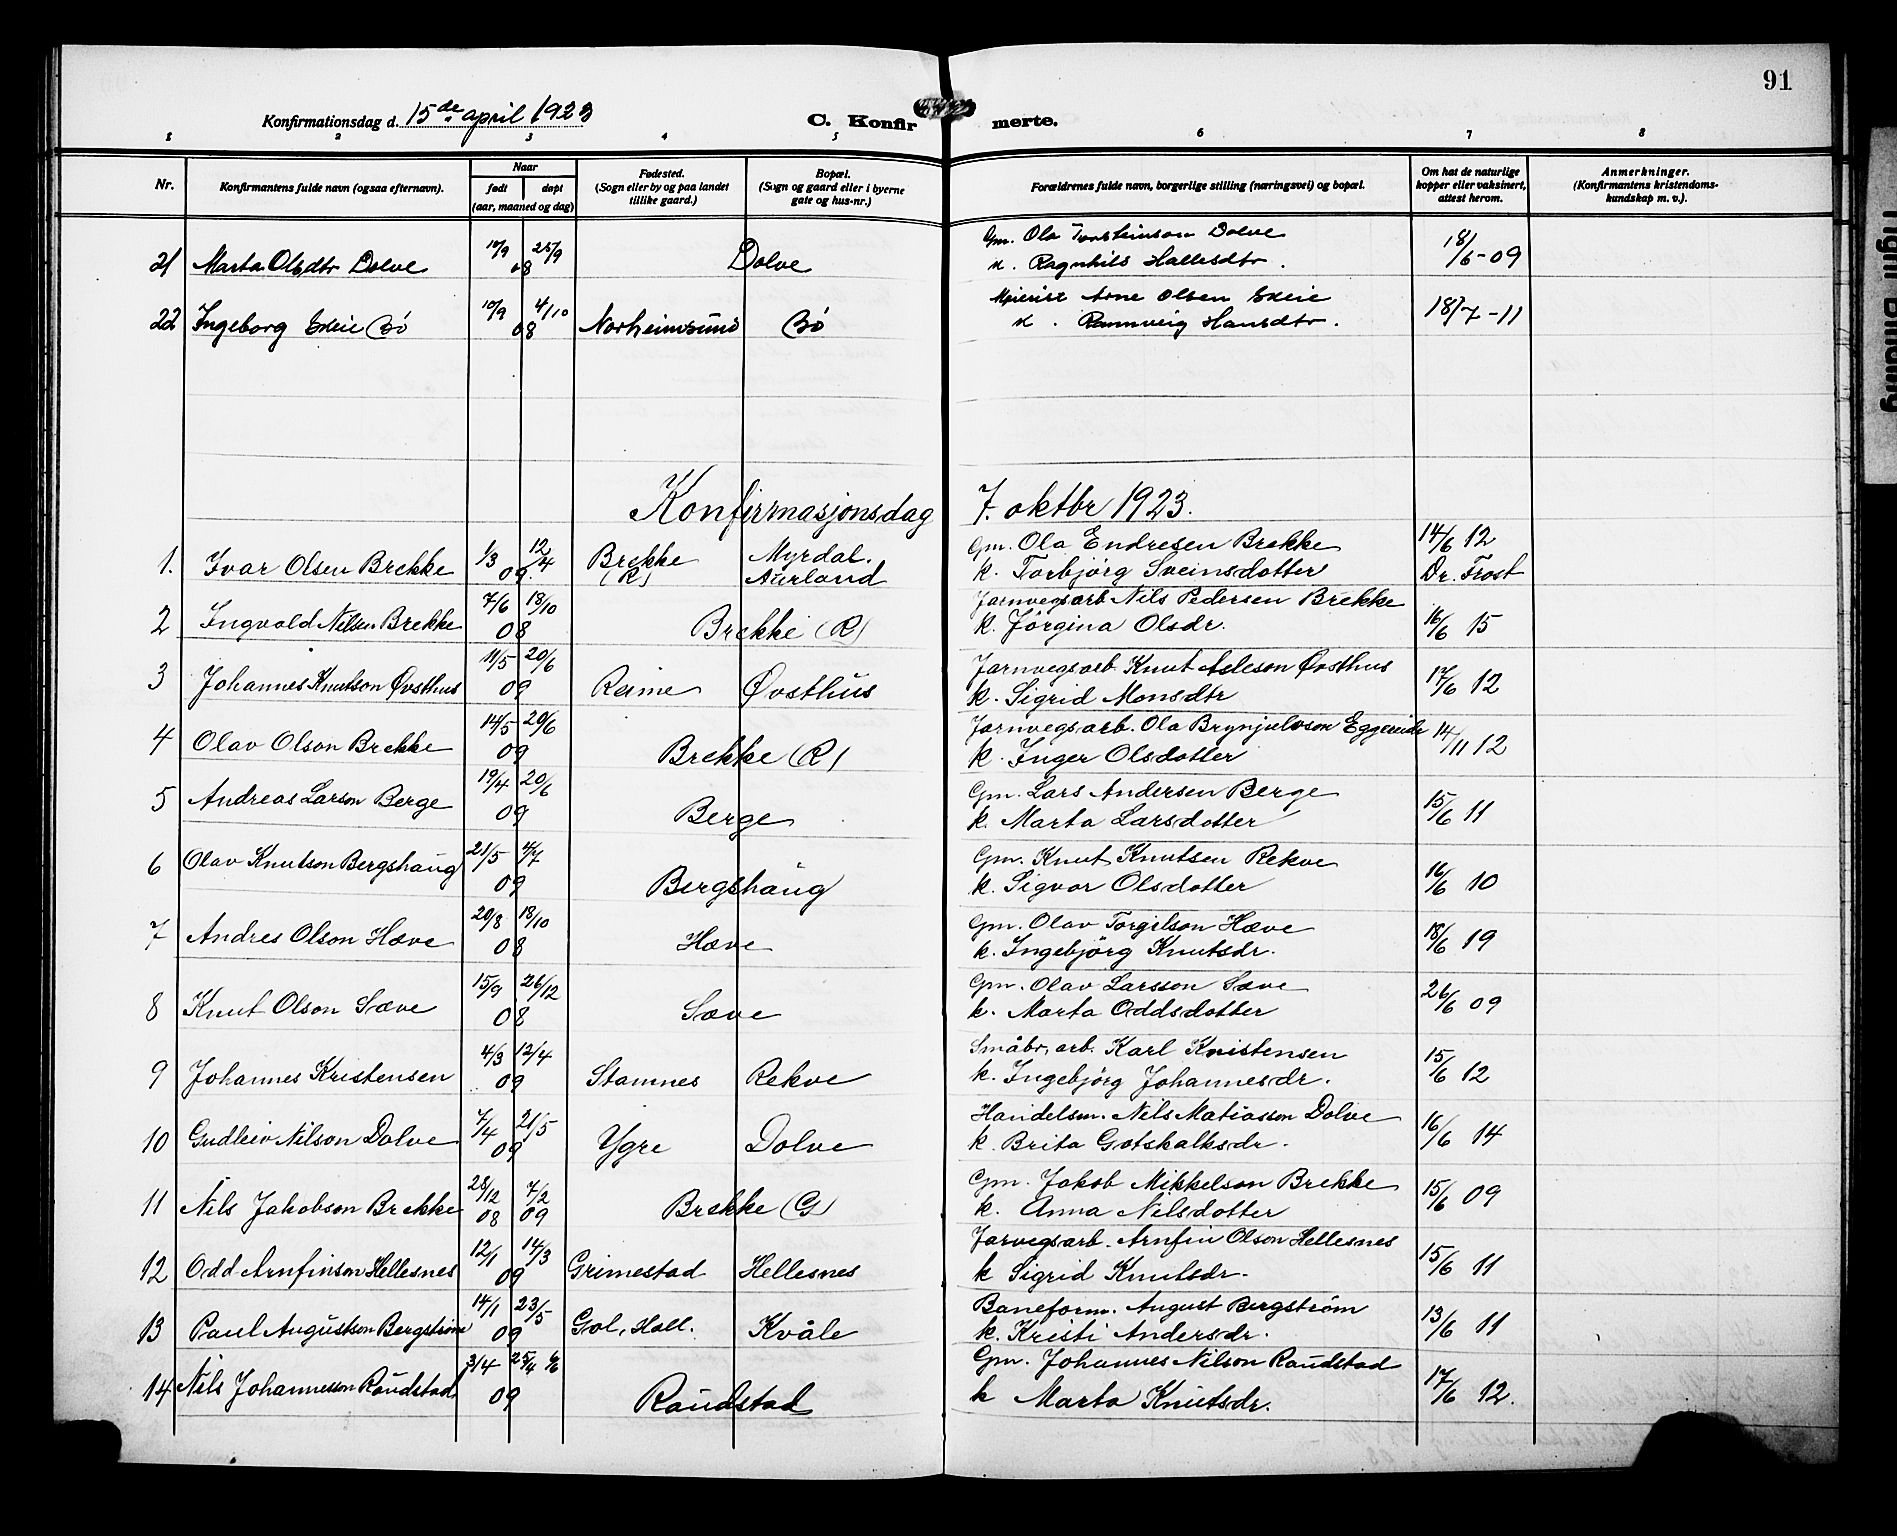 91
Konfirmationsdag d. 15de april 1923
C. Konfirmerte.
1 2 3 4 5 6 7 8
Nr.
Konfirmantens fulde navn (ogsaa efternavn).
Naar
født døpt
(aar, maaned og dag)
Fødested.
(Sogn eller by og paa landet
tillike gaard.)
Bopæl.
(Sogn og gaard eller i byerne
gate og hus-nr.)
Forældrenes fulde navn, borgerlige stilling (næringsvei) og bopæl.
Om hat de naturlige
kopper eller vaksinert,
attest herom.
Anmerkninger.
(Konfirmantens kristendoms-
kundskap m. v.).
21 Marta Olsdtr Dolve 10/9 25/9 08 Dolve
Gm. Ola Torsteinson Dolve
k. Ragnhild Hallesdtr. 18/6-09
22 Ingeborg Skeie Bö 10/9 4/10 08 Norheimsund Bö
Meierist Arne Olsen Skeie
k. Rannveig Hansdtr. 18/7-11
Konfirmasjonsdag 7. oktbr 1923.
1. Ivar Olsen Brekke 1/3 12/4 09. Brekke (R) Myrdal. Aurland
Gm. Ola Endresen Brekke
k. Torbjörg Sveinsdotter 14/6 12 Dr. Frost
2 Ingvald Nilsen Brekke 7/6 18/10 08 Brekke (R)
Jarnvegsarb Nils Pedersen Brekke
k. Jörgina Olsdr. 16/6 15
3 Johannes Knutson Øvsthus 11/5 20/6 09 Reime Øvsthus
Jarnvegsarb Knut Asleson Øvsthus
k. Sigrid Monsdtr 17/6 12
4 Olav Olson Brekke 14/5 20/6 09 Brekke (R)
Jarnvegsarb. Ola Brynjulvson Eggereide
k. Inger Olsdotter 14/11 12
5 Andreas Larson Berge 19/4 20/6 09 Berge
Gm. Lars Andersen Berge
k. Marta Larsdotter 15/6 11
6 Olav Knutson Bergshaug 21/5 4/7 09 Bergshaug
Gm. Knut Knutsen Rekve
k. Sigvor Olsdotter 16/6 10
7 Andres Olson Hæve 20/8 18/10 08 Hæve
Gm. Olav Torgilson Hæve
k. Ingebjörg Knutsdr. 18/6 19
8 Knut Olson Sæve 15/9 26/12 08 Sæve
Gm. Olav Larsson Sæve
k. Marta Oddsdotter 26/6 09
9 Johannes Kristensen 4/3 12/4 09 Stamnes Rekve
Småbr. arb. Karl Kristensen
k. Ingebjörg Johannesdr. 15/6 12
10 Gudleiv Nilson Dolve 7/4 21/5 09 Ygre Dolve
Handelsm. Nils Matiasson Dolve
k. Brita Gotskalksdr. 16/6 14
11 Nils Jakobson Brekke 28/12 08 7/2 09 Brekke (G)
Gm. Jakob Mikkelson Brekke
k. Anna Nilsdotter 15/6 09
12 Odd Arnfinson Hellesnes 12/1 14/3 09 Grimestad Hellesnes
Jarvegsarb. Arnfin Olson Hellesnes
k Sigrid Knutsdr. 15/6 11
13 Paul Augustson Bergström 14/1 23/5 09 Gol, Hall. Kvåle
Baneform. August Bergström
k. Kristi Andersdr. 13/6 11
14 Nils Johannesson Raudstad 3/4 25/4 09 Raudstad
Gm. Johannes Nilson Raudstad
k Marta Knutsdr. 17/6 12.